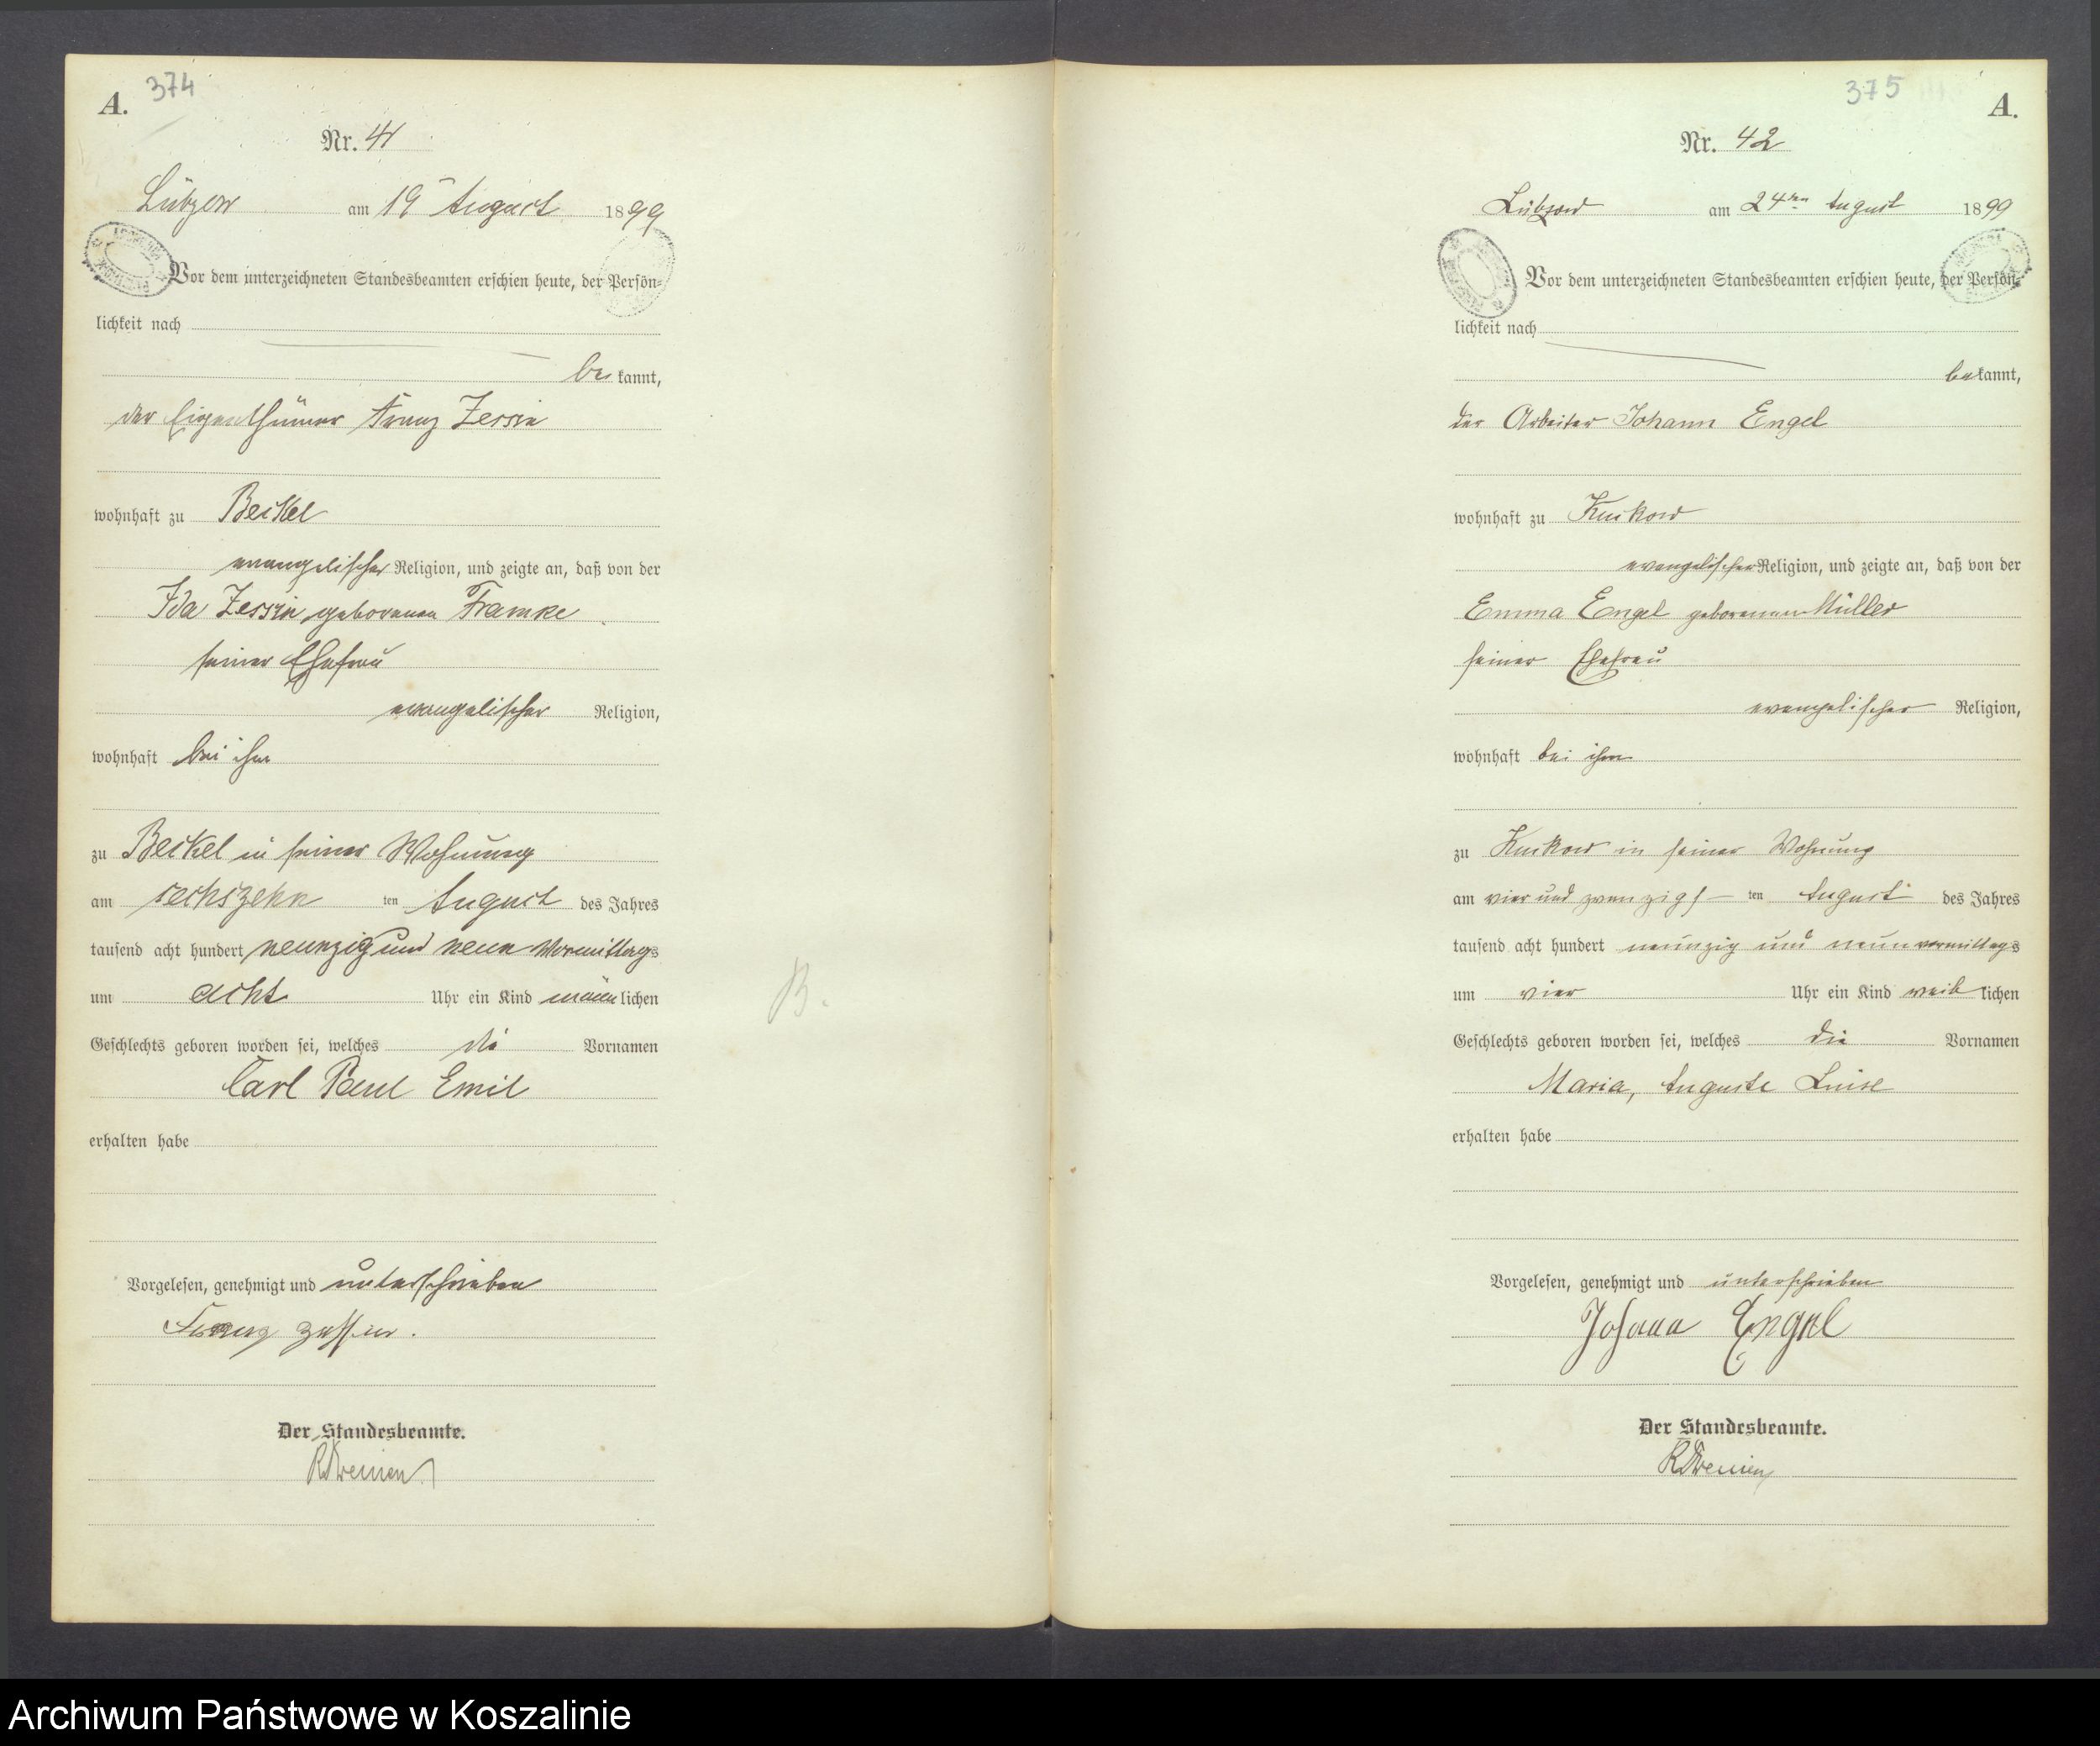 374
A.
Nr. 41
Lübzow am 19 August 1899
Vor dem unterzeichneten Standesbeamten erschien heute, der Persön-
lichkeit nach
be kannt,
der Eigenthümer Franz Zessin
wohnhaft zu Beckel
evangelischer Religion, und zeigte an, daß von der
Ida Zessin geborenen Framke
seiner Ehefrau
evangelischer Religion,
wohnhaft bei ihm
zu Beckel in seiner Wohnung
am sechszehn ten August des Jahres
tausend acht hundert neunzig und neun Vormittags
um acht Uhr ein Kind männlichen
Geschlechts geboren worden sei, welches die Vornamen
Carl Paul Emil
erhalten habe
Vorgelesen, genehmigt und unterschrieben
Franz Zessin.
Der Standesbeamte.
B.
375
A.
Nr. 42
Lübzow am 24ten August 1899
Vor dem unterzeichneten Standesbeamten erschien heute, der Persön-
lichkeit nach
bekannt,
der Arbeiter Johann Engel
wohnhaft zu Kuckow
evangelischer Religion, und zeigte an, daß von der
Emma Engel geborenen Müller
seiner Ehefrau
evangelischer Religion,
wohnhaft bei ihm
zu Kuckow in seiner Wohnung
am vier und zwanzigs ten August des Jahres
tausend acht hundert neunzig und neun vormittags
um vier Uhr ein Kind weiblichen
Geschlechts geboren worden sei, welches die Vornamen
Maria, Auguste Luise
erhalten habe
Vorgelesen, genehmigt und unterschrieben
Johann Engel
Der Standesbeamte.
Archiwum Państwowe w Koszalinie